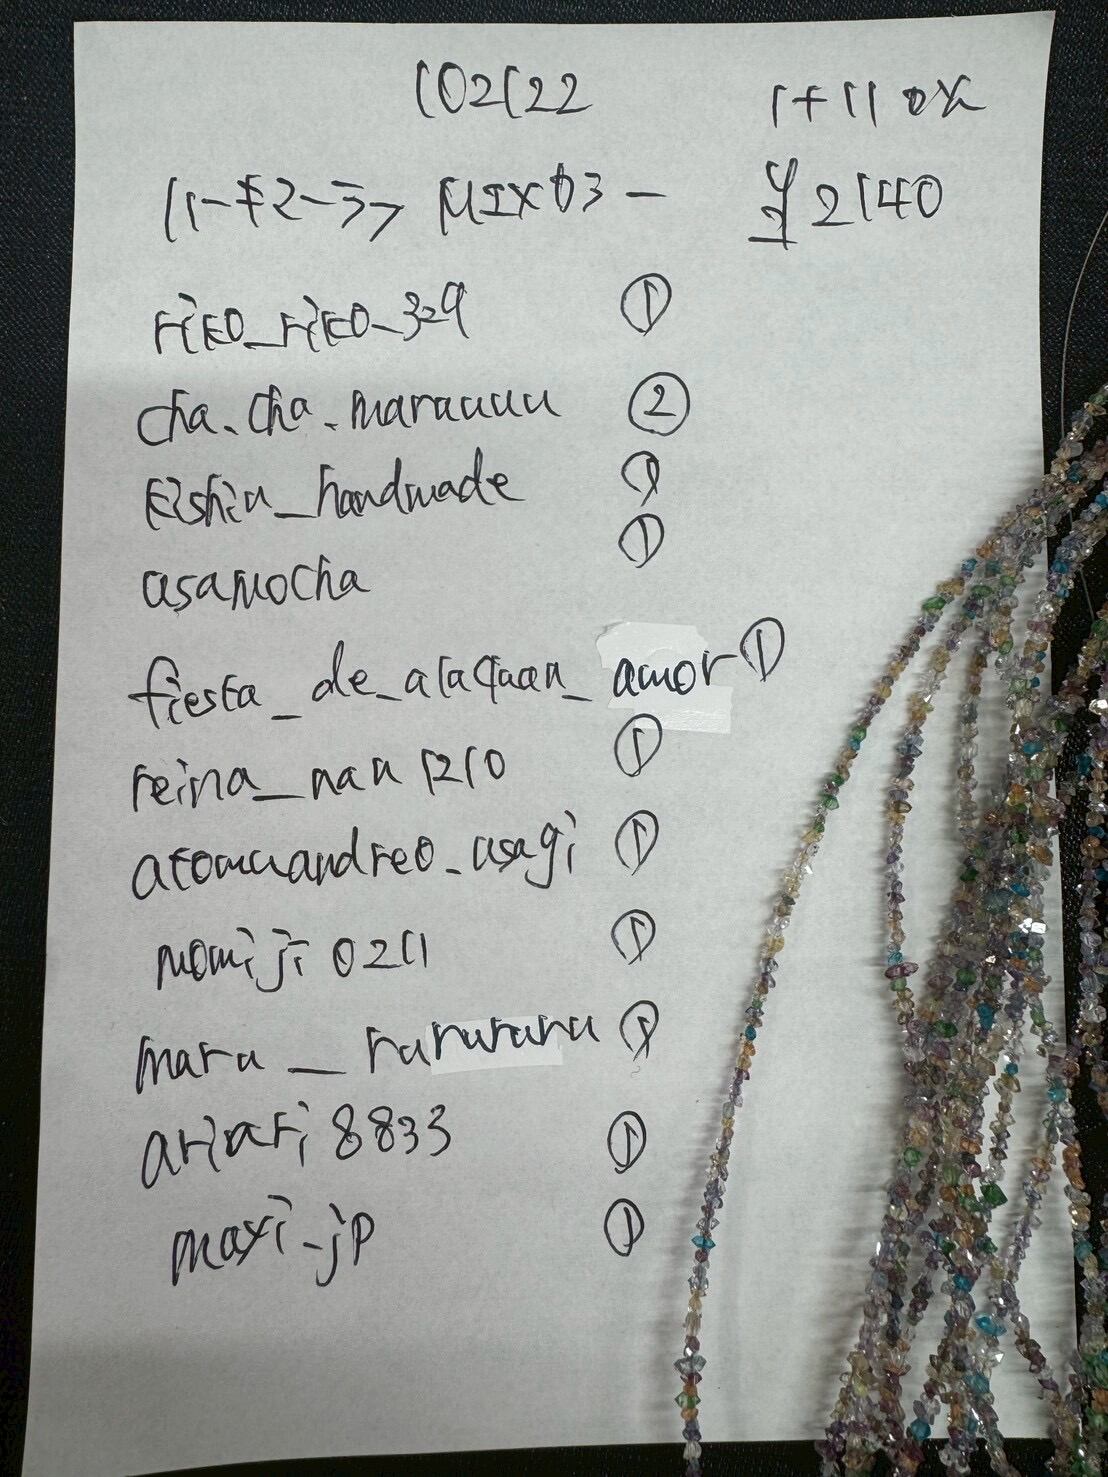 102122 1+11 0%
ハーキマー MIX03 - ¥2140
riko_riko_329 ①
cha.cha.marauuu ②
kishin_handmade ①
asamocha ①
fiesta_de_alaquan_amor ①
reina_nan1210 ①
atomuandreo_usagi ①
momiji0211 ①
maru_rurururu ①
ariari8833 ①
maxi-jp ①